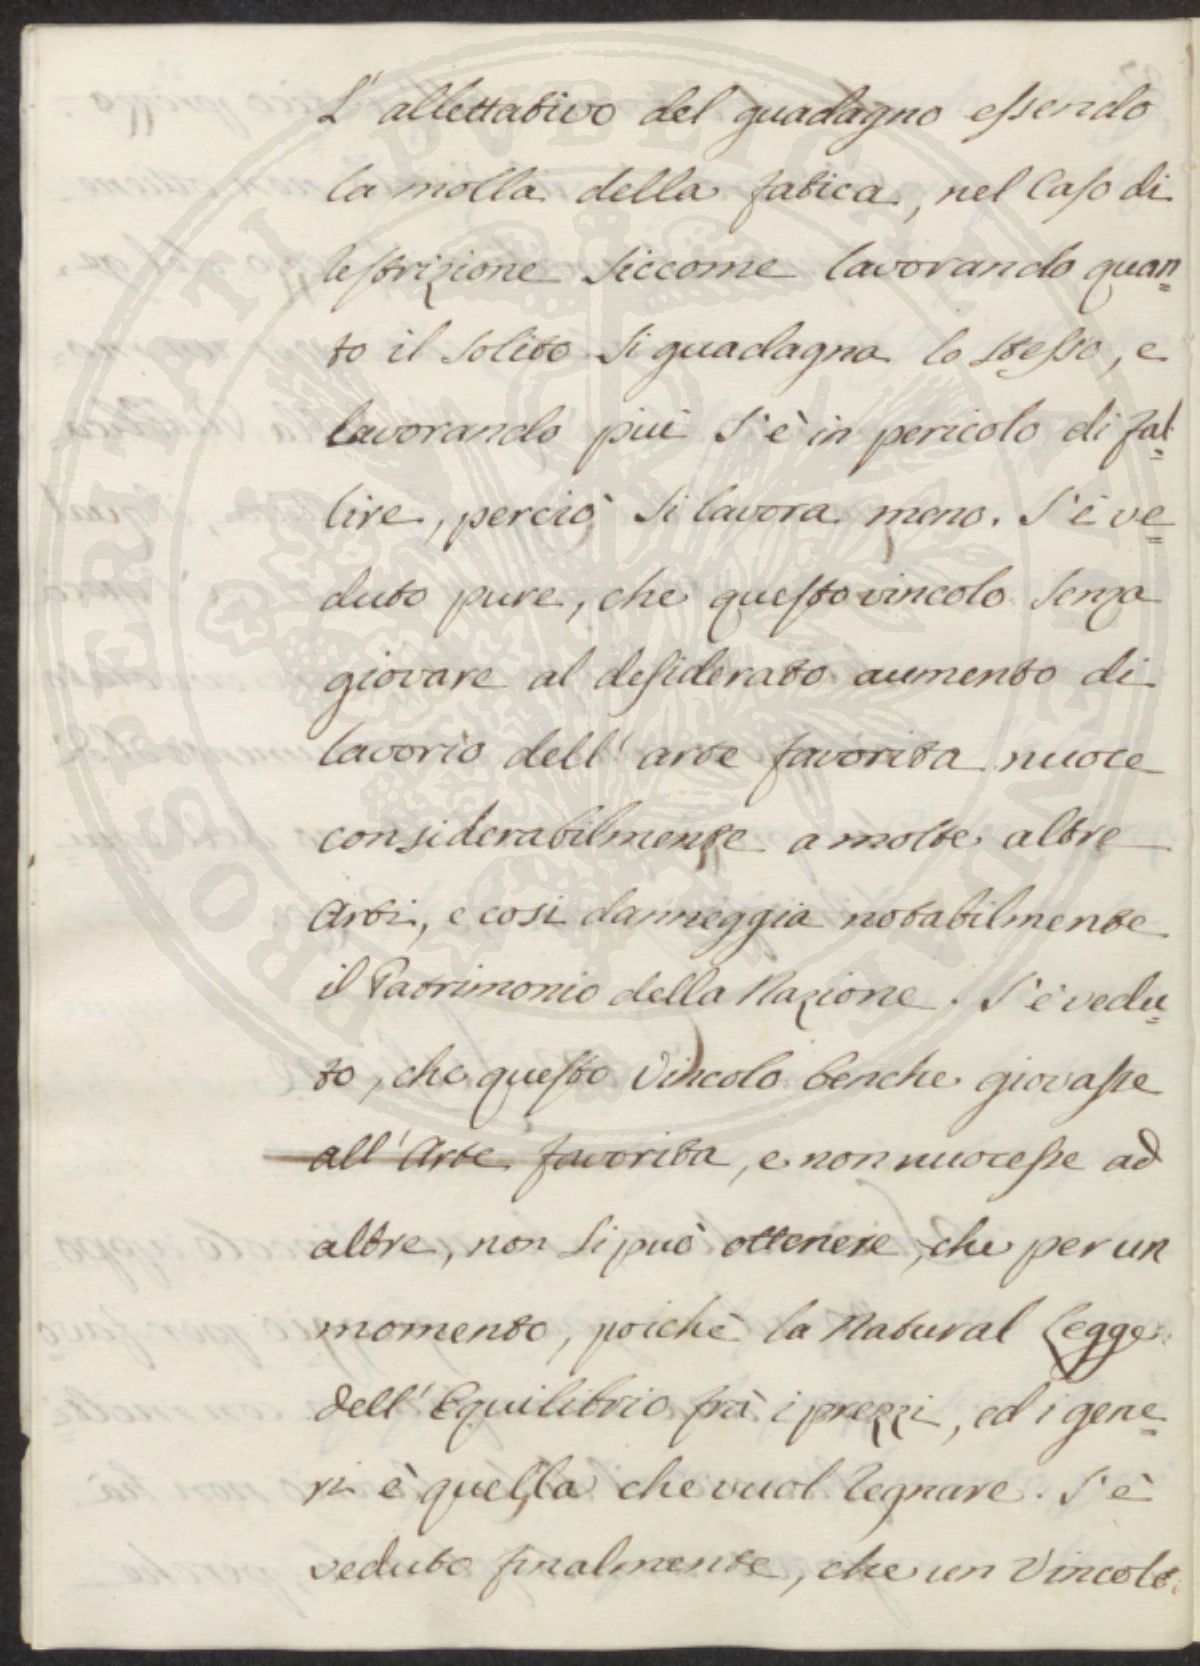 L'allettativo del guadagno essendo
la molla della fatica, nel Caso di
restrizione siccome lavorando quan=
to il solito si guadagna lo stesso, e
lavorando più s'è in pericolo di fal=
lire, perciò si lavora meno. S'è ve=
duto pure, che questo vincolo senza
giovare al desiderato aumento di
lavorìo dell'arte favorita nuoce
considerabilmente a molte altre
Arti, e così danneggia notabilmente
il Patrimonio della Nazione. S'è vedu=
to, che questo Vincolo benche giovasse
all'Arte favorita, e non nuocesse ad
altre, non si può ottenere, che per un
momento, poichè la Natural Legge
dell'Equilibrio frà i prezzi, ed i gene=
ri è quella che vuol regnare. S'è
veduto finalmente, che un Vincolo
PROSPERITATI PUBLICAE AUGENDAE